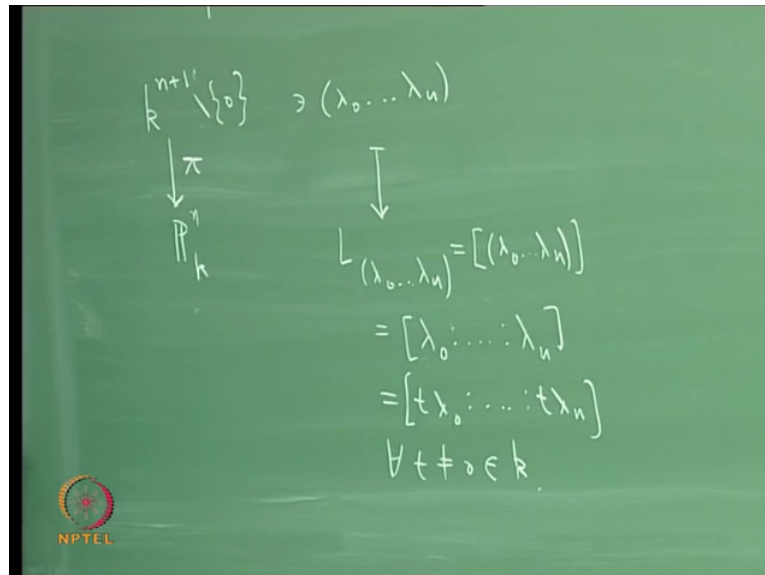 k^{n+1} \ {0} ∋ (λ_0 ... λ_n)
↓ π
ℙ^n_k L_{(λ_0 ... λ_n)} = [(λ_0 ... λ_n)]
= [λ_0 : .... : λ_n]
= [tλ_0 : .... : tλ_n]
∀ t ≠ 0 ∈ k.
NPTEL